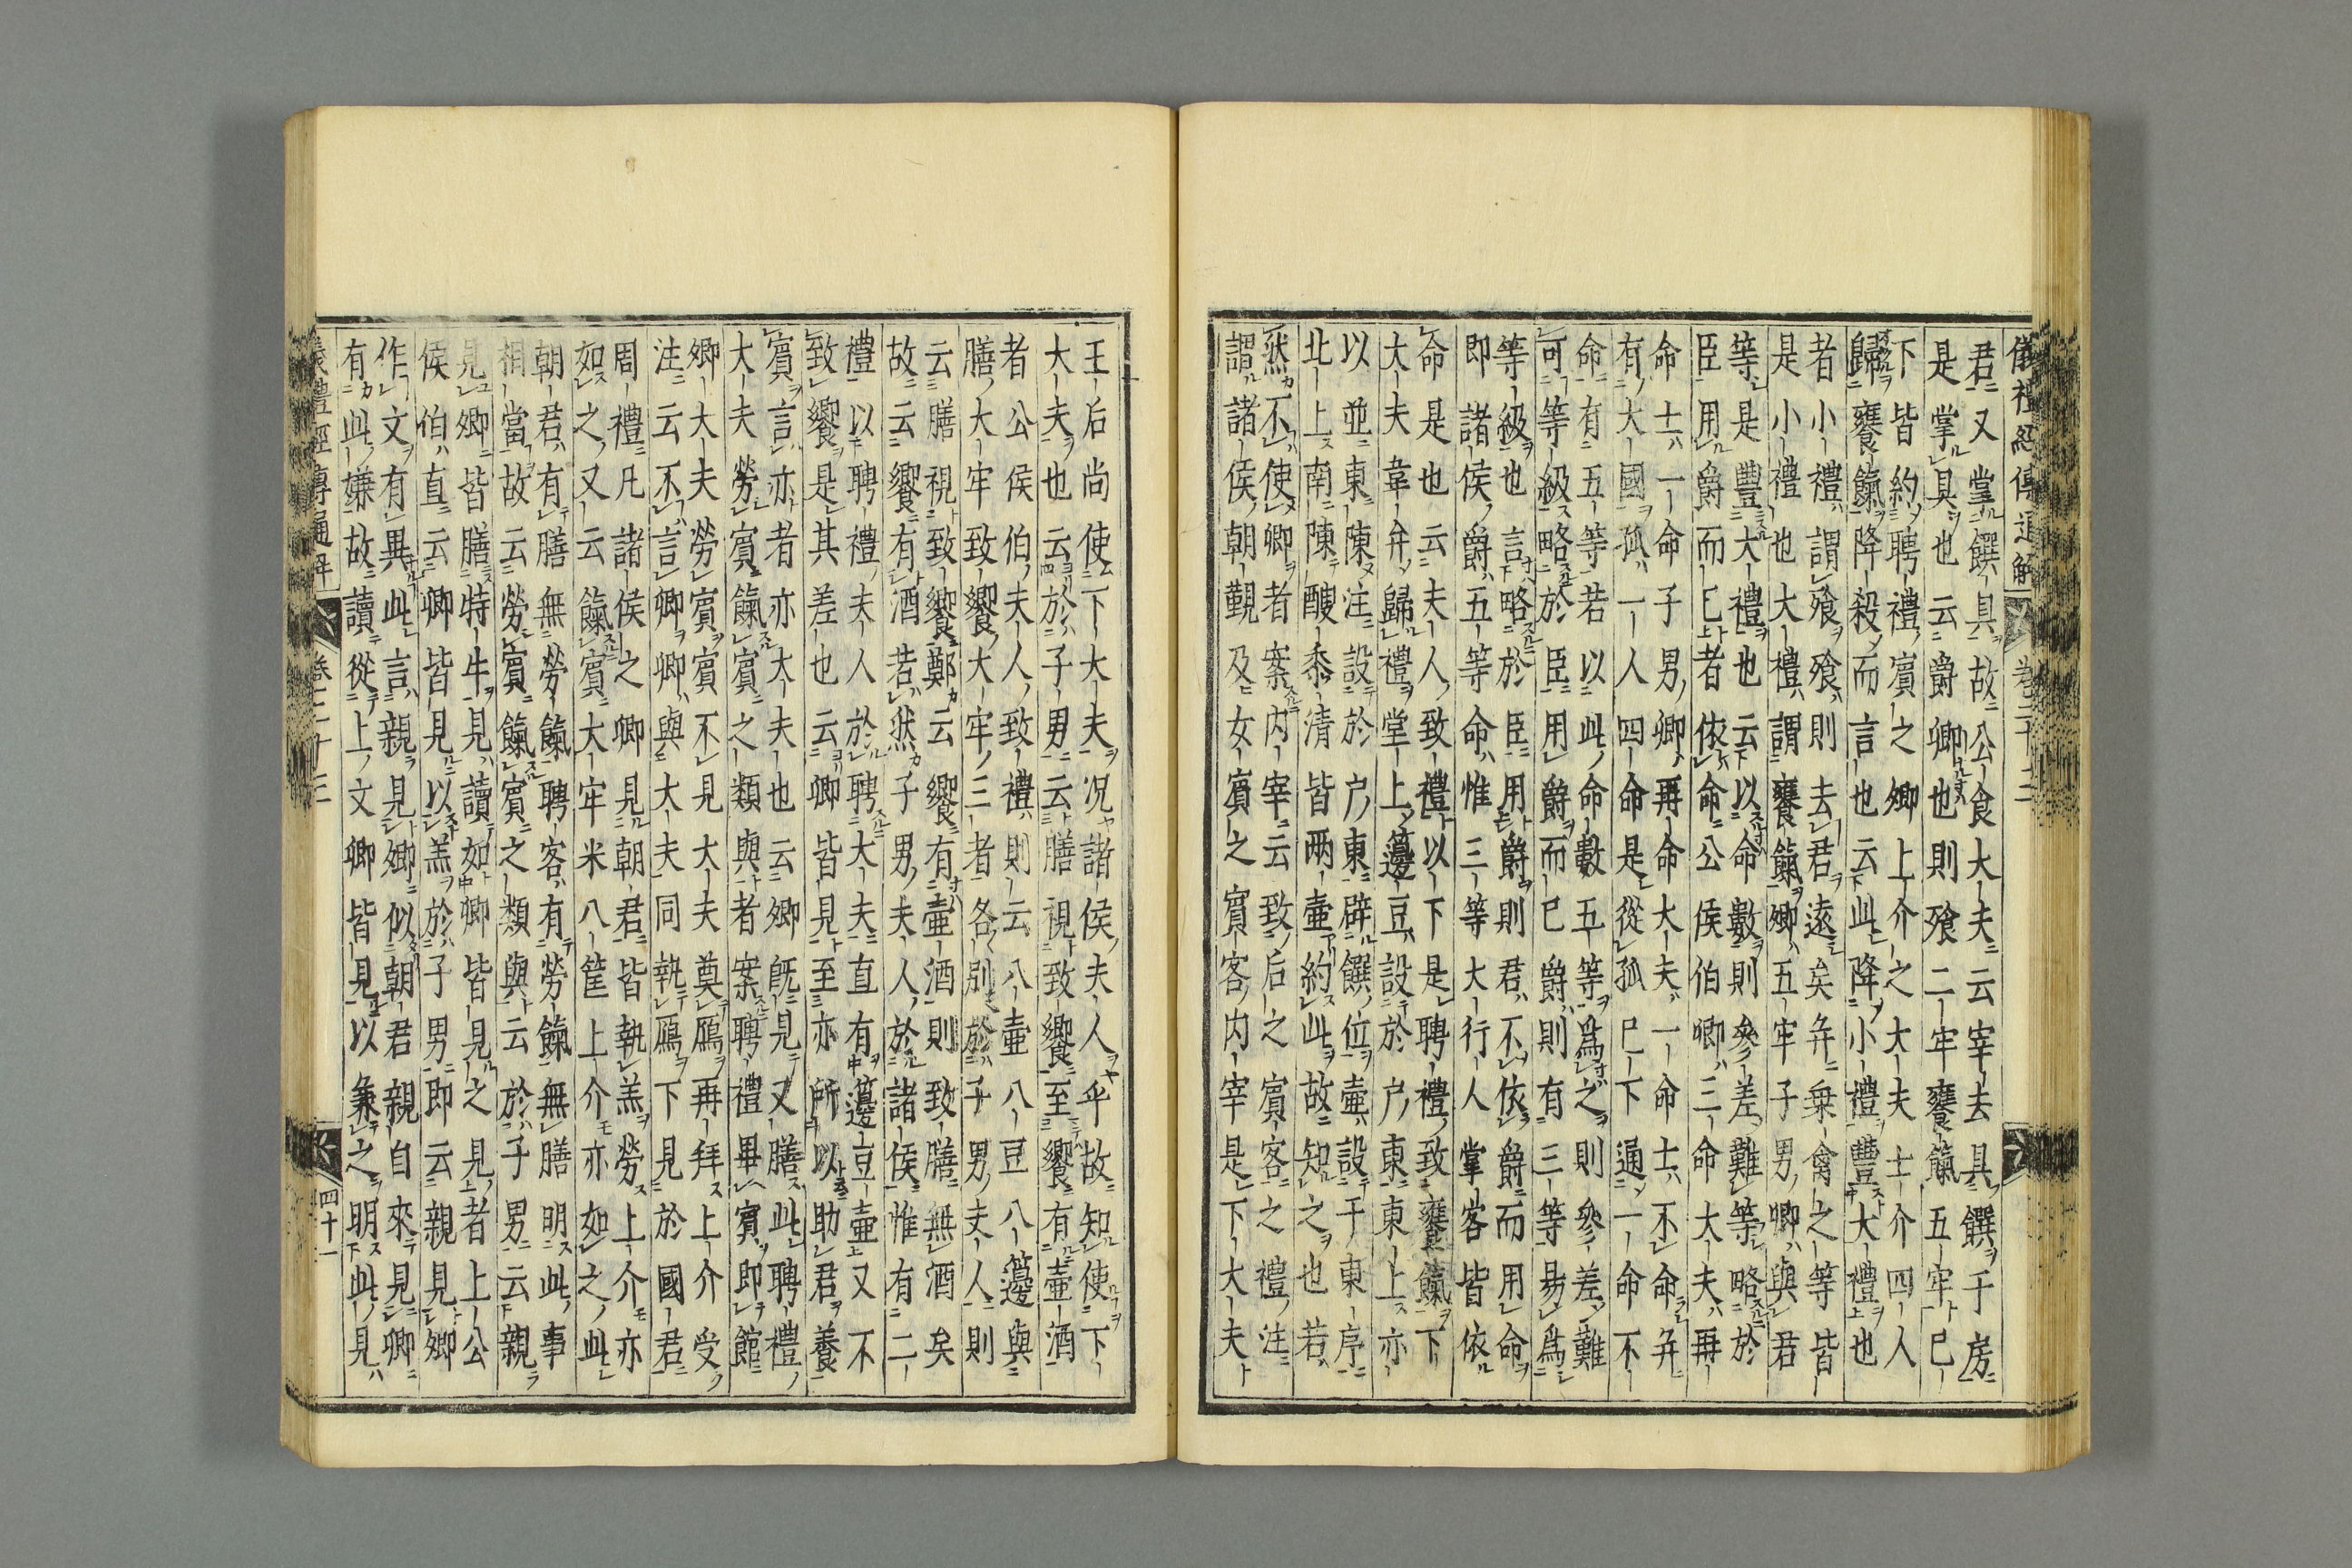 儀禮經傳通解 卷二十三
君又掌饌具故公食大夫云宰夫具饌于房
是掌具也云爵卿也則飧二牢饔餼五牢已
下皆約聘禮賓之卿上介之大夫士介四人
歸饔餼降殺而言也云此降小禮豐大禮也
者小禮謂飧飧則去君遠矣并乗禽之等皆
是小禮也大禮謂饔餼卿五牢子男卿與君
等是豐大禮也云以命數則參差難等略於
臣用爵而已者依命公侯伯卿三命大夫再
命士一命子男卿再命大夫一命士不命并
有大國孤一人四命是從孤已下通一命不
命有五等若以此命數五等爲之則參差難
可等級略於臣用爵而已爵則有三等易爲
等級也言略於臣用爵則君不依爵而用命
即諸侯爵五等命惟三等大行人掌客皆依
命是也云夫人致禮以下是聘禮致饔餼下
大夫韋弁歸禮堂上籩豆設于戶東東上亦
以並東陳注設於戶東辟饌位壷設于東序
北上南陳醙黍清皆兩壷約此故知之也若
然不使卿者案内宰云致后之賓客之禮注
謂諸侯朝覲及女賓之賓客内宰是下大夫
王后尚使下大夫况諸侯夫人乎故知使下
大夫也云於子男云膳視致饗至饗有壷酒
者公侯伯夫人致禮則云八壷八豆八籩與
膳大牢致饗大牢三者各別於子男夫人則
云膳視致饗鄭云饗有壷酒則致膳無酒矣
故云饗有酒若然子男夫人於諸侯惟有二
禮以聘禮夫人於聘大夫直有籩豆壷又不
致饗是其差也云卿皆見至亦所以助君養
賓言亦者亦大夫也云卿旣見又膳此聘禮
大夫勞賓餼賓之類與者案聘禮畢賓即館
卿大夫勞賓賓不見大夫奠鴈再拜上介受
注云不言卿卿與大夫同執鴈下見於國君
周禮凡諸侯之卿見朝君皆執羔勞上介亦
如之又云餼賓大牢米八筐上介亦如之此
朝君有膳無勞餼聘客有勞餼無膳明此事
相當故云勞賓餼賓之類與云於子男云親
見卿皆膳特牛見讀如卿皆見之見者上公
侯伯直云卿皆見以羔於子男即云親見卿
作文有異此言親見卿似朝君親自來見卿
有此嫌故讀從上文卿皆見以兼之明此見
儀禮經傳通解 卷二十三 四十一